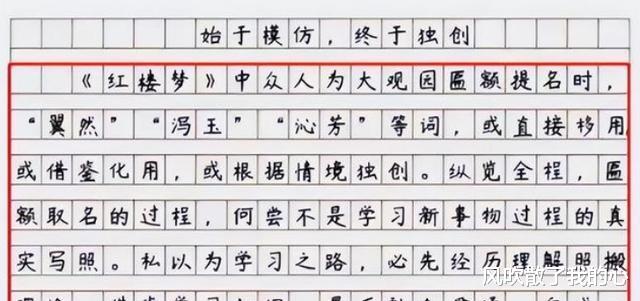 始于模仿，终于独创
《红楼梦》中众人为大观园匾额提名时，
“翼然”“泻玉”“沁芳”等词，或直接移用
或借鉴化用，或根据情境独创。纵览全程，匾
额取名的过程，何尝不是学习新事物过程的真
实写照。私以为学习之路，必先经历理解照搬
风吹散了我的心